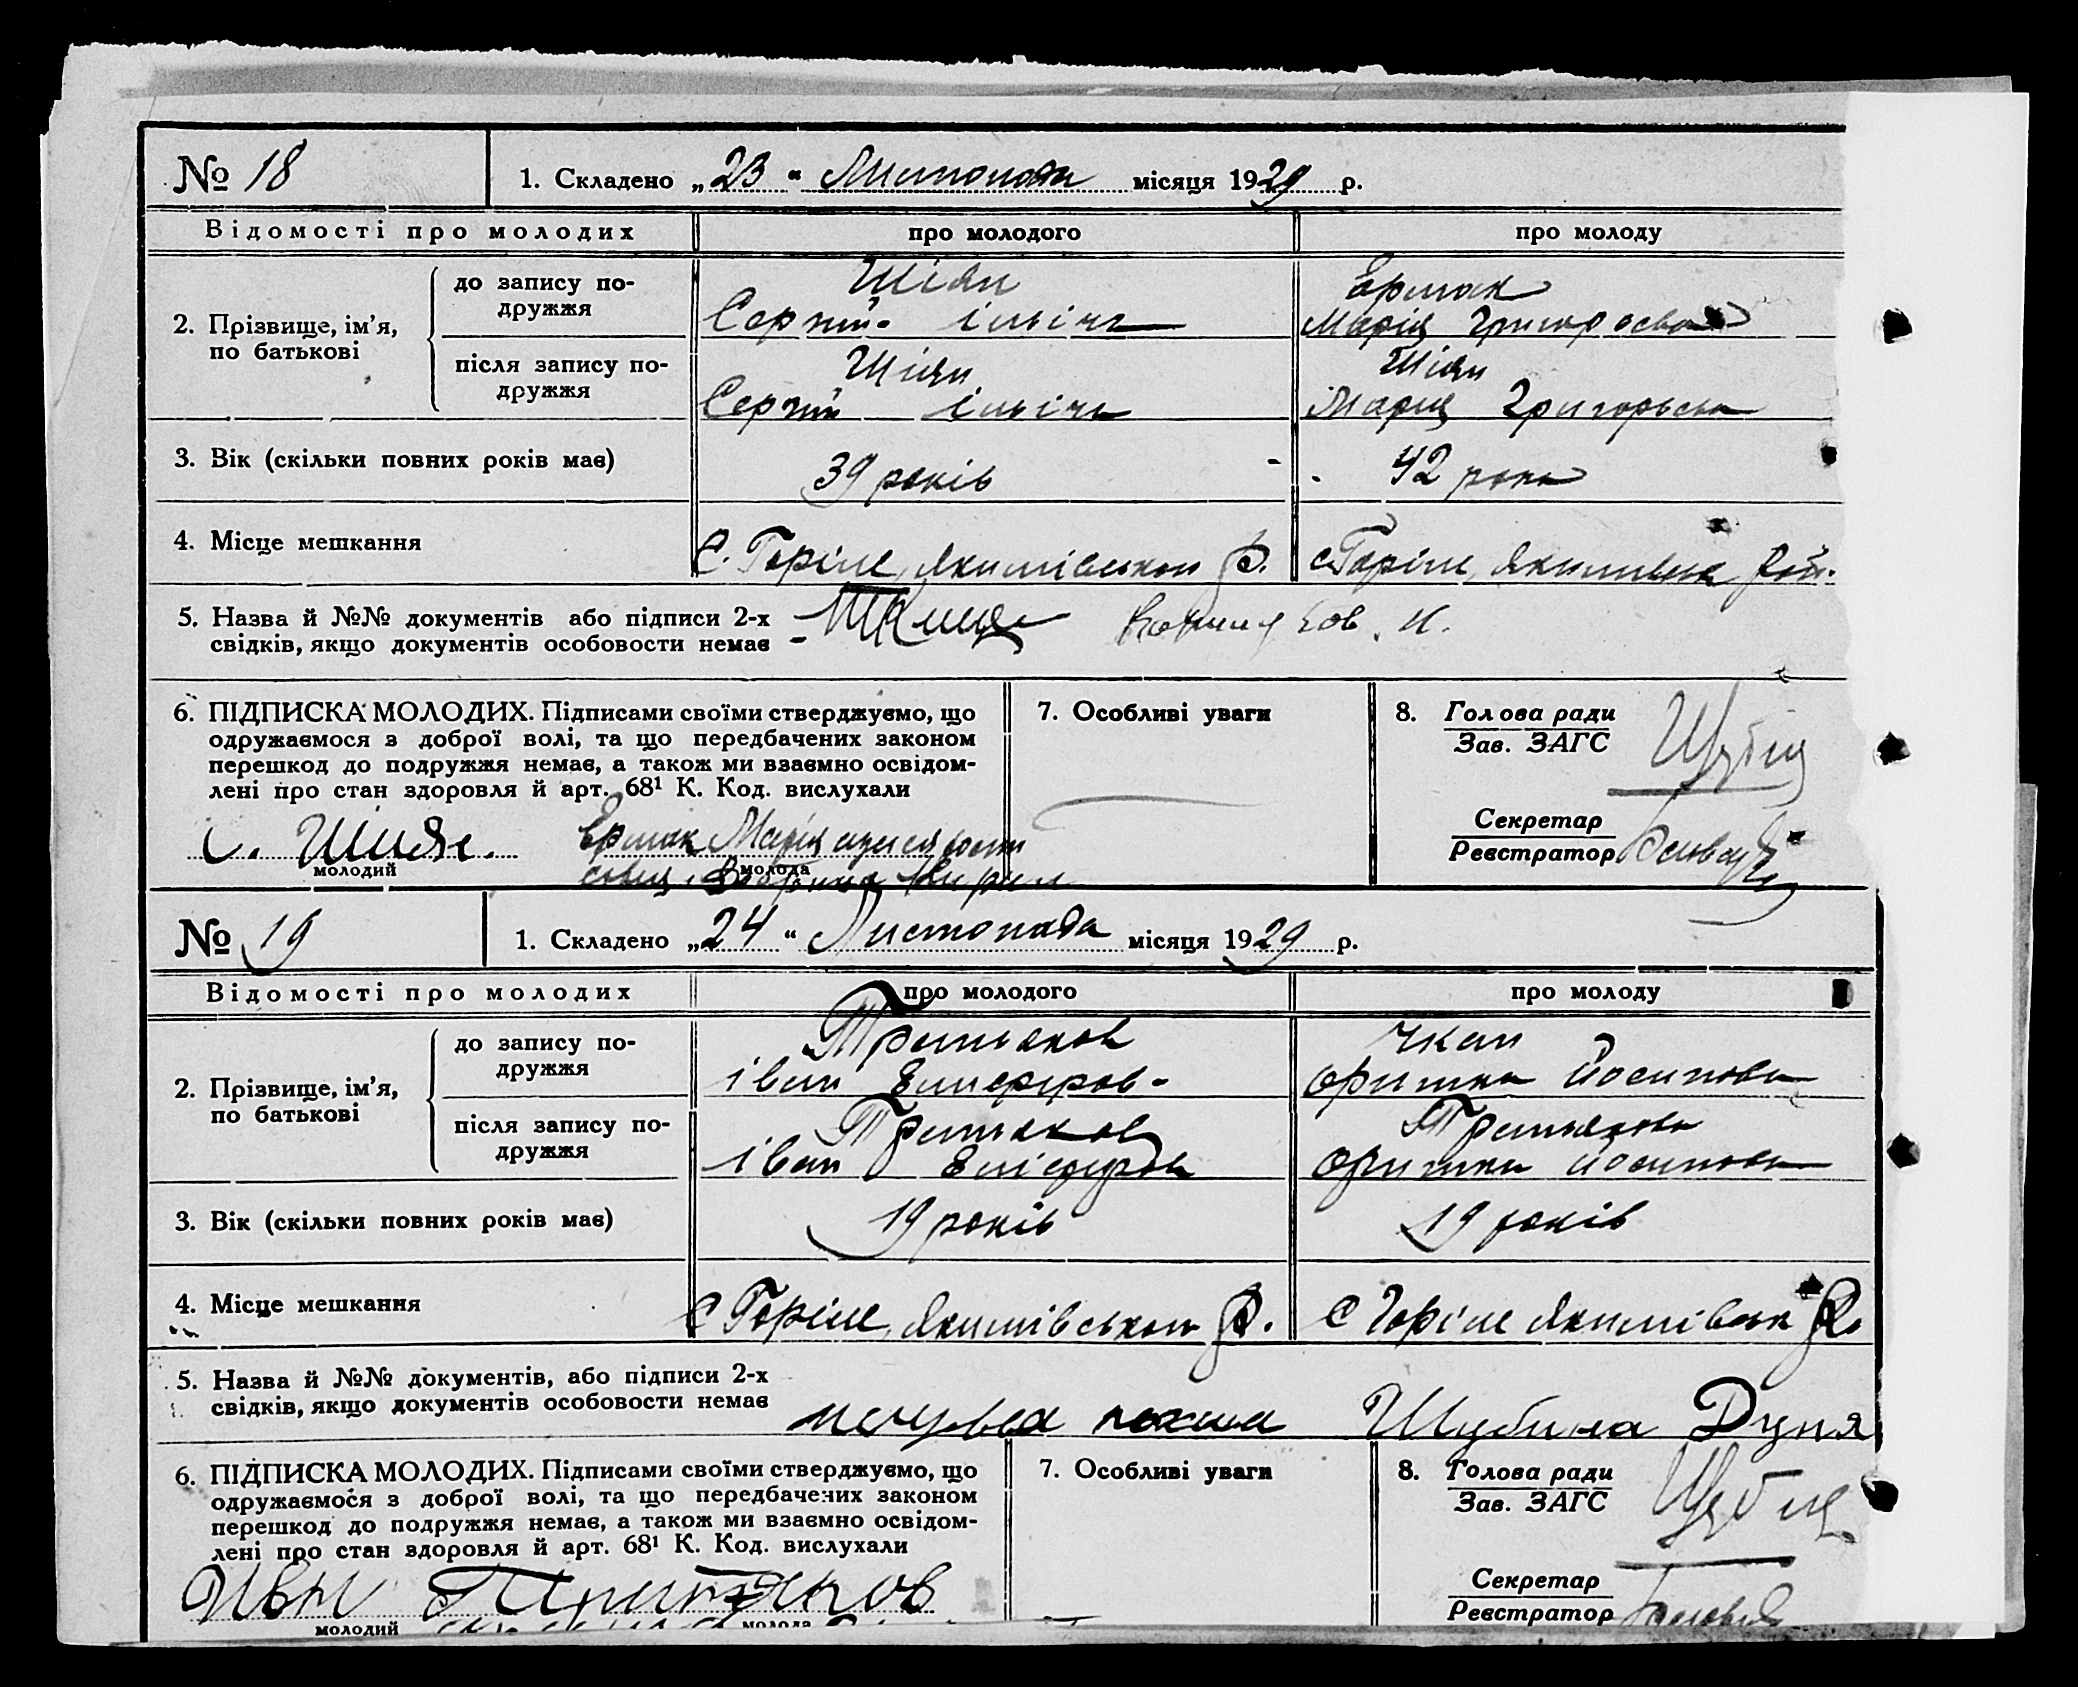 № 18
1. Складено „23“ Листопада місяця 1929 р.
Відомості про молодих
про молодого
про молоду
2. Прізвище, ім’я, по батькові
до запису подружжя
Шіян
Сергій ілліч
Ермак
Марія Григор
після запису подружжя
Шіян
Сергій ілліч
Шіян
Марія Григорьевна
3. Вік (скільки повних років має)
39 років
42 роки
4. Місце мешкання
С. Горіле, Якимівського Р.
с. Горіле, Якимівськ Рай.
5. Назва й №№ документів або підписи 2-х
свідків, якщо документів особовости немає
6. ПІДПИСКА МОЛОДИХ. Підписами своїми стверджуємо, що
одружаємося з доброї волі, та що передбачених законом
перешкод до подружжя немає, а також ми взаємно освідом-
лені про стан здоровля й арт. 68¹ К. Код. вислухали
С. Шиян.
Ермак Марія
молодий
молода
7. Особливі уваги
8. Голова ради
Зав. ЗАГС
Секретар
Реєстратор
№ 19
1. Складено „24“ Листопада місяця 1929 р.
Відомості про молодих
про молодого
про молоду
2. Прізвище, ім’я, по батькові
до запису подружжя
Третьяков
іван
Чкан
Оришка Йосипова
після запису подружжя
Третьяков
іван
Третьякова
Оришка Йосипова
3. Вік (скільки повних років має)
19 років
19 років
4. Місце мешкання
С Горіле, Якимівського Р.
С Горіле Якимівськ Р.
5. Назва й №№ документів, або підписи 2-х
свідків, якщо документів особовости немає
Шубина Дуня
6. ПІДПИСКА МОЛОДИХ. Підписами своїми стверджуємо, що
одружаємося з доброї волі, та що передбачених законом
перешкод до подружжя немає, а також ми взаємно освідом-
лені про стан здоровля й арт. 68¹ К. Код. вислухали
молодий
молода
7. Особливі уваги
8. Голова ради
Зав. ЗАГС
Секретар
Реєстратор